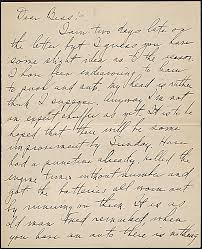 Dear Bess:-
I am two days late on
the letter but I guess you have
some slight idea as to the reason.
I have been endeavoring to learn
to push and pull. My head is rather
thick I suppose. Anyway I'm not
an expert chaufer as yet. It is to be
hoped that there will be some
improvement by Sunday. Have
had a puncture already, killed the
engine times without number and
got the batteries all worn out
by running on them. It is as
old man remarked when
you have an auto there is nothing